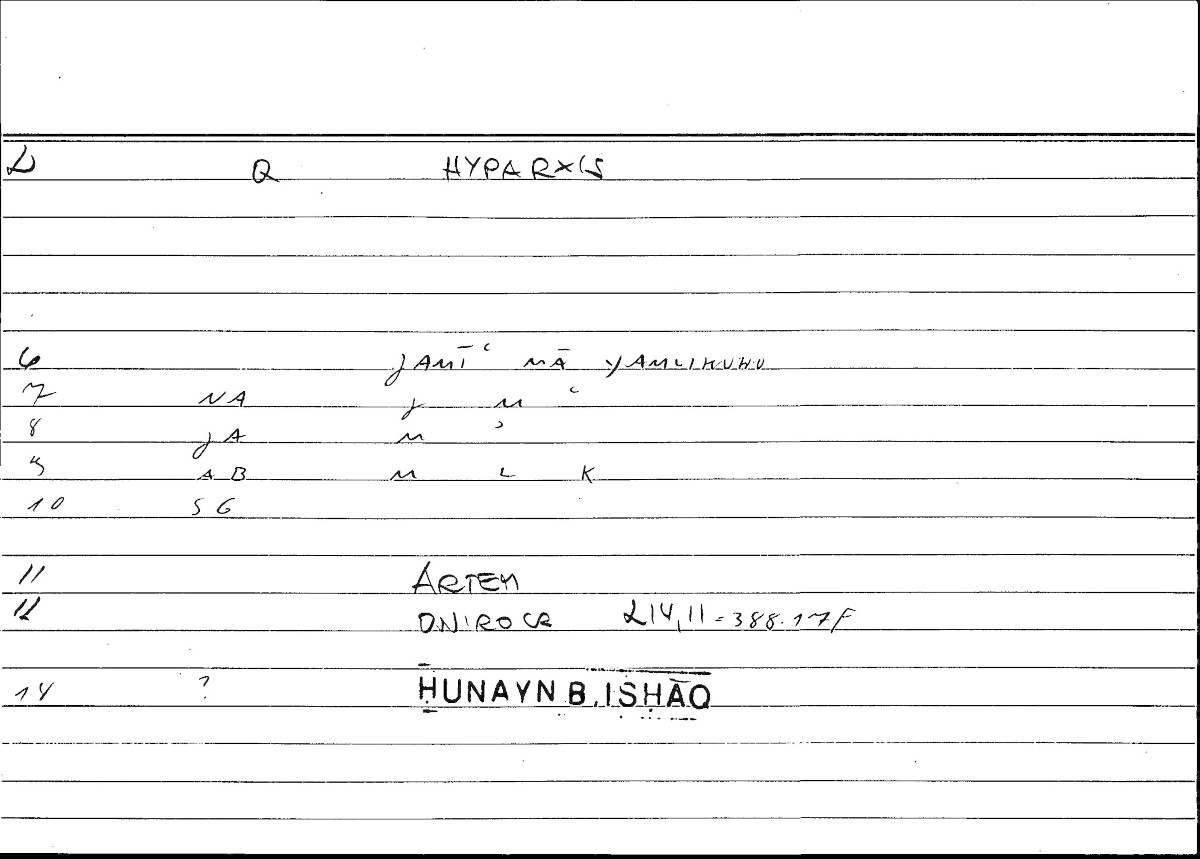 2 Q HYPARXIS
6 JAMĪʿ MĀ YAMLIKUHU
7 NA J M ʿ
8 JA M ʾ
9 AB M L K
10 SG
11 ARTEM
12 ONIROCR 214,11 = 388.17F
14 ? ḤUNAYN B. ISḤĀQ